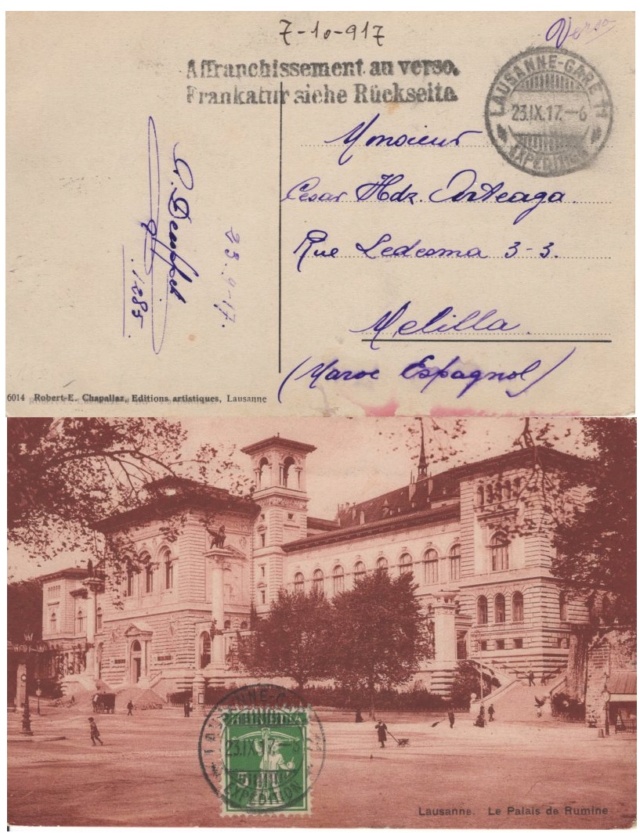 7-10-917
Verso
Affranchissement au verso.
Frankatur siehe Rückseite.
LAUSANNE-GARE 11
23.IX.17.-6
EXPEDITION
Monsieur
Cesar Hdz. Arteaga.
Rue Ledesma 3-3.
Melilla.
(Maroc Espagnol)
1285.
6014 Robert-E. Chapallaz, Editions artistiques, Lausanne
23.IX.17.-6
EXPEDITION
Lausanne. Le Palais de Rumine